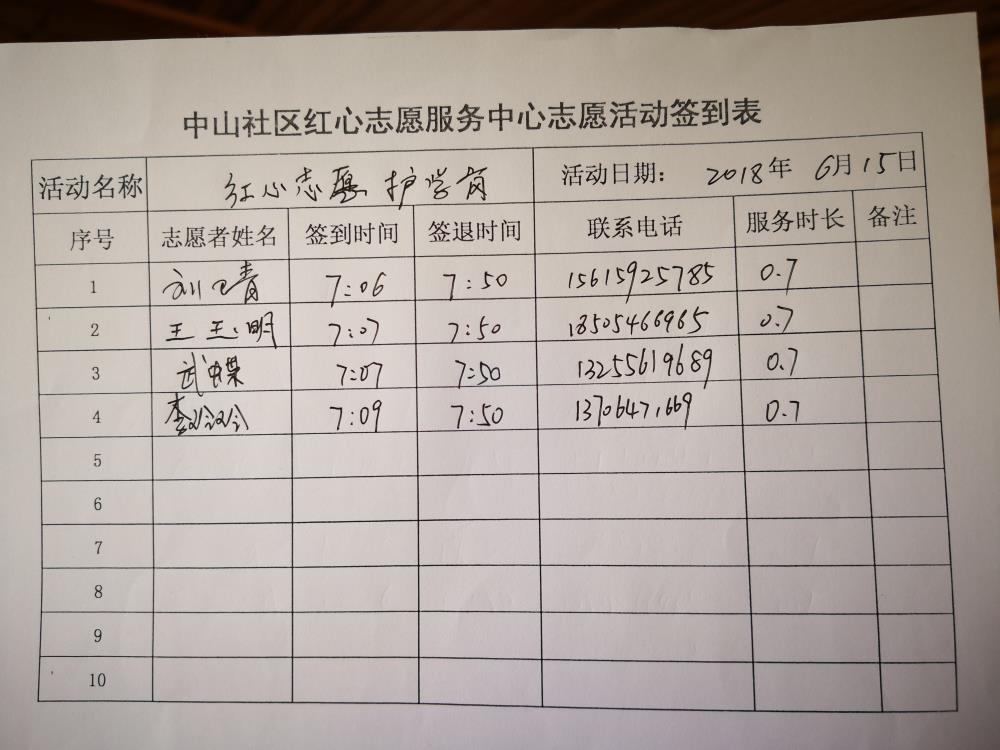 中山社区红心志愿服务中心志愿活动签到表
活动名称 红心志愿护学岗 活动日期: 2018年 6月15日
序号 志愿者姓名 签到时间 签退时间 联系电话 服务时长 备注
1 刘卫青 7:06 7:50 15615925785 0.7
2 王玉明 7:07 7:50 18505466965 0.7
3 武蝶 7:07 7:50 13255619689 0.7
4 李 7:09 7:50 13706471669 0.7
5
6
7
8
9
10